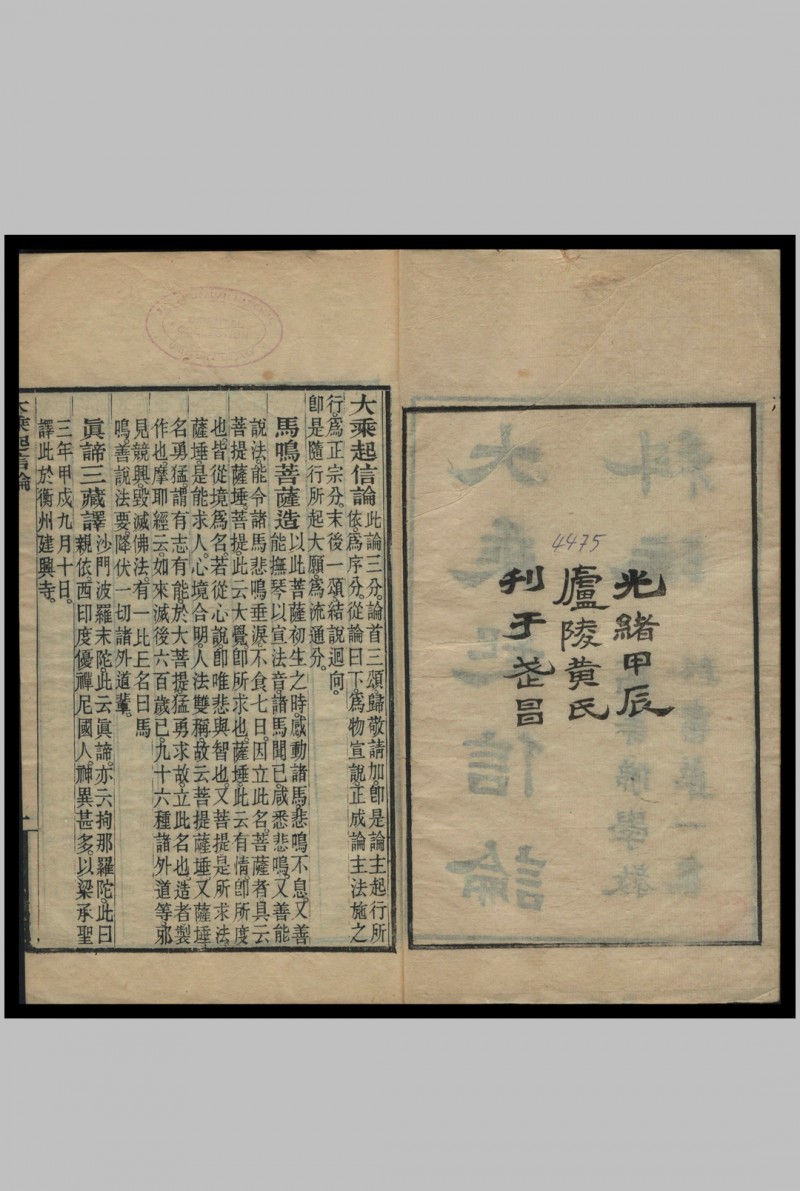 4475
光緒甲辰
廬陵黄氏
刋于武昌
大乘起信論 此論三分。論首三頌歸敬請加。卽是論主起行所
依。爲序分。從論曰下。爲物宣說。正成論主法施之
行。爲正宗分。末後一頌結說迴向。
卽是隨行所起大願。爲流通分。
馬鳴菩薩造 以此菩薩初生之時。感動諸馬。悲鳴不息。又善
能撫琴以宣法音。諸馬聞已。咸悉悲鳴。又善能
說法。能令諸馬悲鳴垂淚不食七日。因立此名。菩薩者。具云
菩提薩埵。菩提此云大覺。卽所求也。薩埵此云有情。卽所度
也。皆從境爲名。若從心說。卽唯悲與智也。又菩提是所求法。
薩埵是能求人。心境合明。人法雙稱。故云菩提薩埵。又薩埵
名勇猛。謂有志有能。於大菩提猛勇求故。立此名也。造者。製
作也。摩耶經云。如來滅後六百歲已。九十六種諸外道等。邪
見競興。毀滅佛法。有一比丘名曰馬
鳴。善說法要。降伏一切諸外道輩。
眞諦三藏譯 沙門波羅末陀。此云眞諦。亦云拘那羅陀。此曰
親依。西印度優禪尼國人。神異甚多。以梁承聖
三年甲戌九月十日。
譯此於衡州建興寺。
大乘起信論
一